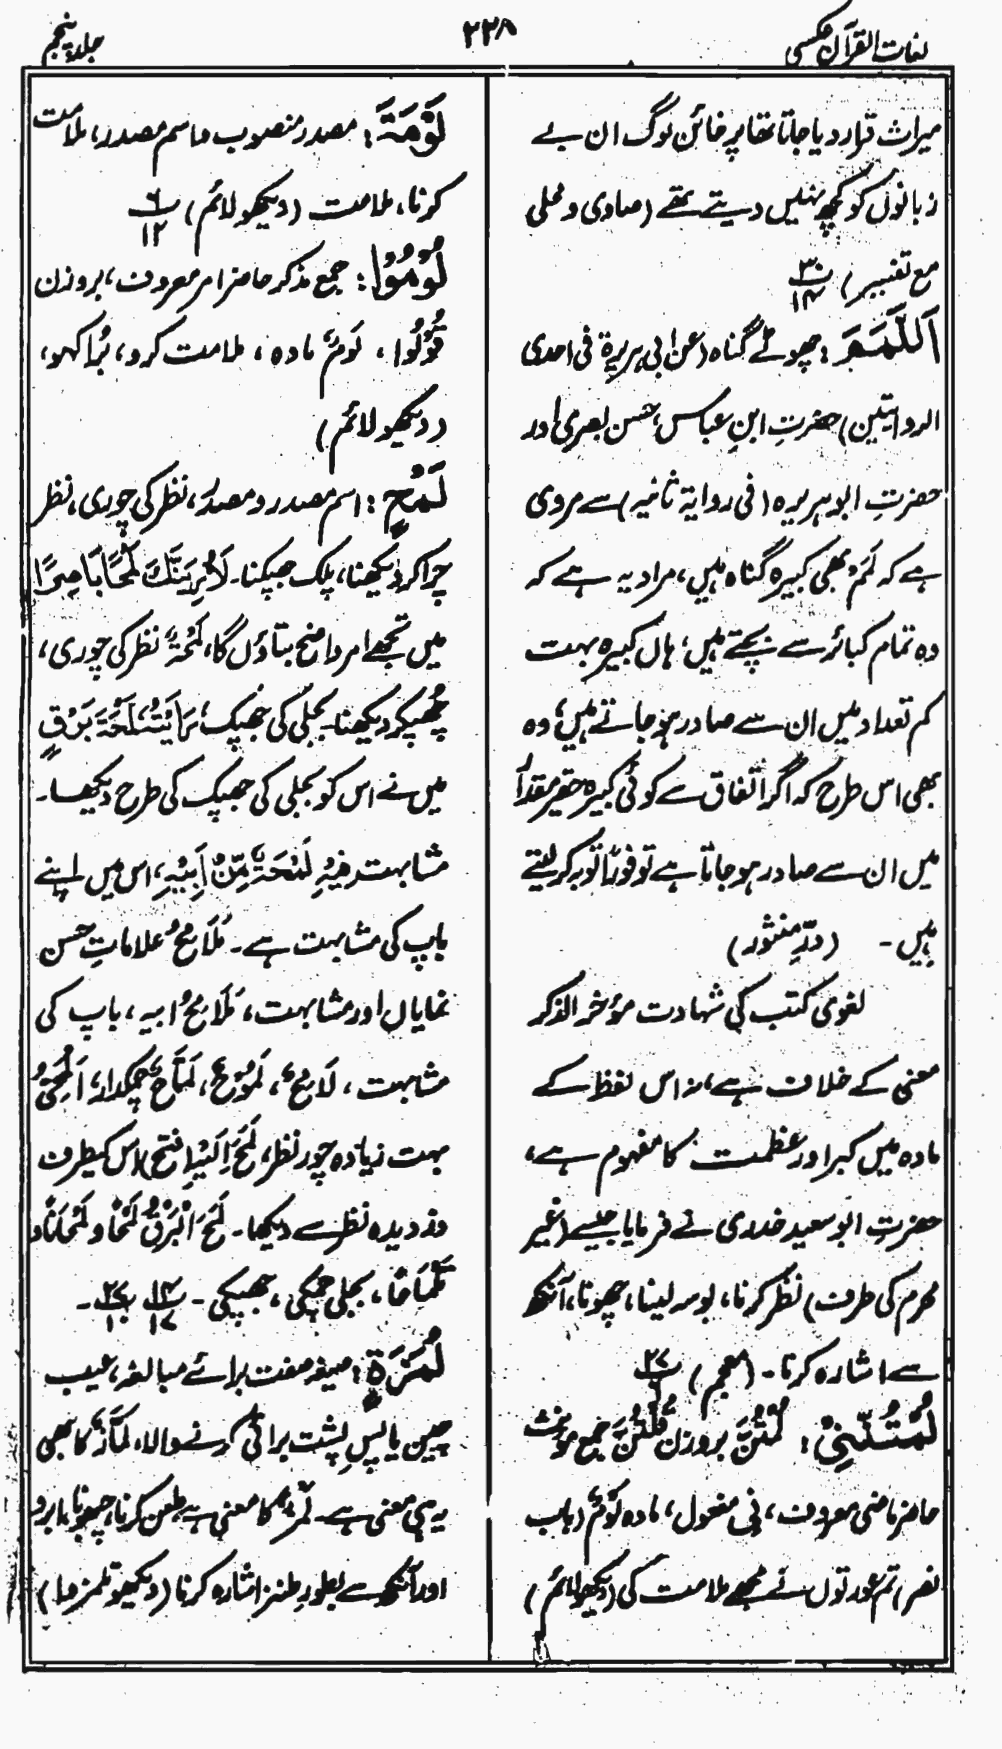 لغات القرآن عکسی
۲۲۸
جلد پنجم
میراث قرار دیا جاتا تھا پر خائن لوگ ان بے
زبانوں کو کچھ نہیں دیتے تھے (صاوی و محلی
مع تفسیر) ۳۰/۱۴
اَللَّمَمَ: چھوٹے گناہ (عن ابی ہریرۃ فی احدی
الروایتین) حضرتِ ابنِ عباس، حسن بصری اور
حضرتِ ابو ہریرہ (فی روایۃ ثانیہ) سے مروی
ہے کہ لَمَم بھی کبیرہ گناہ ہیں، مراد یہ ہے کہ
وہ تمام کبائر سے بچتے ہیں، ہاں کبیرہ بہت
کم تعداد میں ان سے صادر ہو جاتے ہیں، وہ
بھی اس طرح کہ اگر اتفاق سے کوئی کبیرہ حقیر مقدار
میں ان سے صادر ہو جاتا ہے تو فوراً توبہ کر لیتے
ہیں۔ (درِّ منثور)
لغوی کتب کی شہادت مؤخر الذکر
معنی کے خلاف ہے، نہ اس لفظ کے
مادہ میں کبر اور عظمت کا مفہوم ہے،
حضرتِ ابو سعید خدری نے فرمایا جیسے (غیر
محرم کی طرف) نظر کرنا، بوسہ لینا، چھونا، آنکھ
سے اشارہ کرنا۔ (معجم) ۲۷/۶
لُمْتُنَّنِیْ: لُمْتُنَّ بروزن قُلْتُنَّ جمع مؤنث
حاضر ماضی معروف، نی مفعول، مادہ لَوْمٌ (باب
نصر) تم عورتوں نے مجھے ملامت کی (دیکھو لائم)
لَوْمَةَ: مصدر منصوب و اسم مصدر، ملامت
کرنا، ملامت (دیکھو لائم) ۶/۱۲
لُوْمُوْا: جمع مذکر حاضر امر معروف، بروزن
قُوْلُوا، لَوْمٌ مادہ، ملامت کرو، بُرا کہو،
(دیکھو لائم)
لَمْحٍ: اسم مصدر و مصدر، نظر کی چوری، نظر
چرا کر دیکھنا، پلک جھپکنا۔ لَاُرِیَنَّكَ لَمْحًا بَاصِرًا
میں تجھے امر واضح بتاؤں گا، لَمْحَةٌ نظر کی چوری،
چُھپکر دیکھنا۔ بجلی کی جھپک، رَاَیْتُهٗ لَمْحَةَ بَرْقٍ
میں نے اس کو بجلی کی جھپک کی طرح دیکھا۔
مشابہت فِیْهِ لَمْحَةٌ مِّنْ اَبِیْهِ، اس میں اپنے
باپ کی مشابہت ہے۔ مَلَامِحُ علاماتِ حسن
نمایاں اور مشابہت، مَلَامِحُ ابیہ، باپ کی
مشابہت، لَامِحٌ، لَمُوْحٌ، لَمَّاحٌ چمکدار، اَلْمَحِیُّ
بہت زیادہ چور نظر، لَمَحَ اِلَیْهِ (فتح) اس کی طرف
دزدیدہ نظر سے دیکھا۔ لَمَحَ الْبَرْقُ لَمْحًا و لَمَحَانًا و
تَلْمَاحًا، بجلی چمکی، جھپکی۔ ۱۴/۱۷ ۲۷/۱۰۔
لُمَزَةٍ: صیغہ صفت برائے مبالغہ، عیب
چین یا پسِ پشت برائی کرنے والا، لَمَّازٌ کا بھی
یہی معنی ہے۔ لَمْزٌ کا معنی ہے طعن کرنا، چبھونا، ابرو
اور آنکھ سے بطورِ طنز اشارہ کرنا (دیکھو تلمزوا)